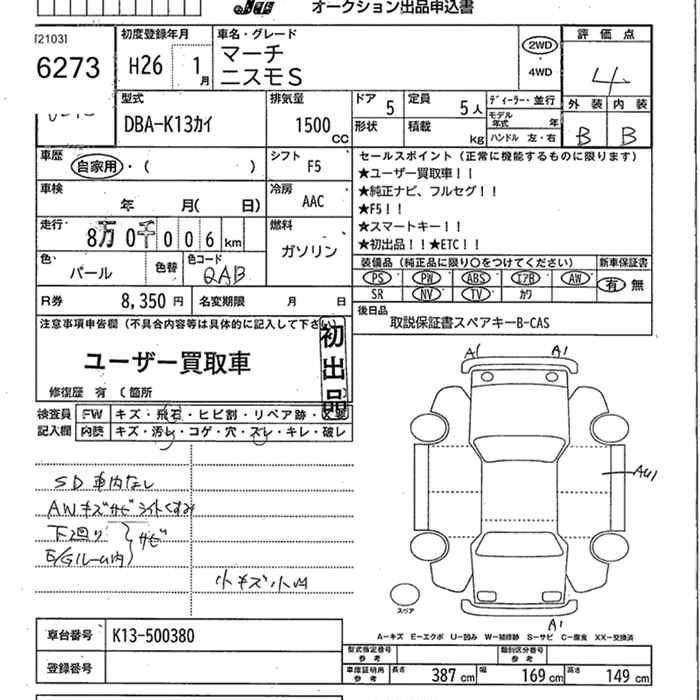 オークション出品申込書
[2103]
6273
初度登録年月
H26 1月
車名・グレード
マーチ
ニスモS
2WD
4WD
評価点
4
外装 内装
B B
型式
DBA-K13カイ
排気量
1500 CC
ドア 5
定員 5人
形状
積載 kg
ディーラー・並行
モデル年式 年
ハンドル 左・右
車歴
自家用・( )
シフト
F5
車検
年 月( 日)
冷房
AAC
走行
8万0千006km
燃料
ガソリン
色
パール
色替
色コード
QAB
R券 8,350円
名変期限 月 日
セールスポイント(正常に機能するものに限ります)
★ユーザー買取車!!
★純正ナビ、フルセグ!!
★F5!!
★スマートキー!!
★初出品!!★ETC!!
装備品(純正品に限り○をつけてください)
新車保証書
PS PW ABS エアB AW
SR NV TV カワ
有 無
後日品
取説保証書スペアキーB-CAS
注意事項申告欄(不具合内容等は具体的に記入して下さい)
ユーザー買取車
初出品
修復歴 有 (箇所
検査員
記入欄
FW キズ・飛石・ヒビ割・リペア跡・
内張 キズ・汚レ・コゲ・穴・スレ・キレ・破レ
SD 車内なし
AWキズサビ ライトくすみ
下廻り
E/Gルーム内
サビ
小キズ小凹
A1 A1
AU1
A1
スペア
A-キズ E-エクボ U-凹み W-補修跡 S-サビ C-腐食 XX-交換済
車台番号 K13-500380
登録番号
型式指定番号
参考
類別区分番号
参考
車庫証明用
参考
長さ 387cm 幅 169cm 高さ 149cm